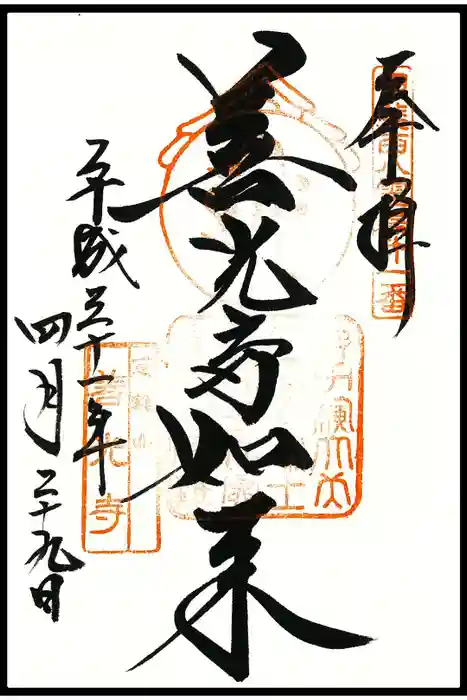 奉拝
善光寺如来
平成三十一年
四月二十九日
善光寺